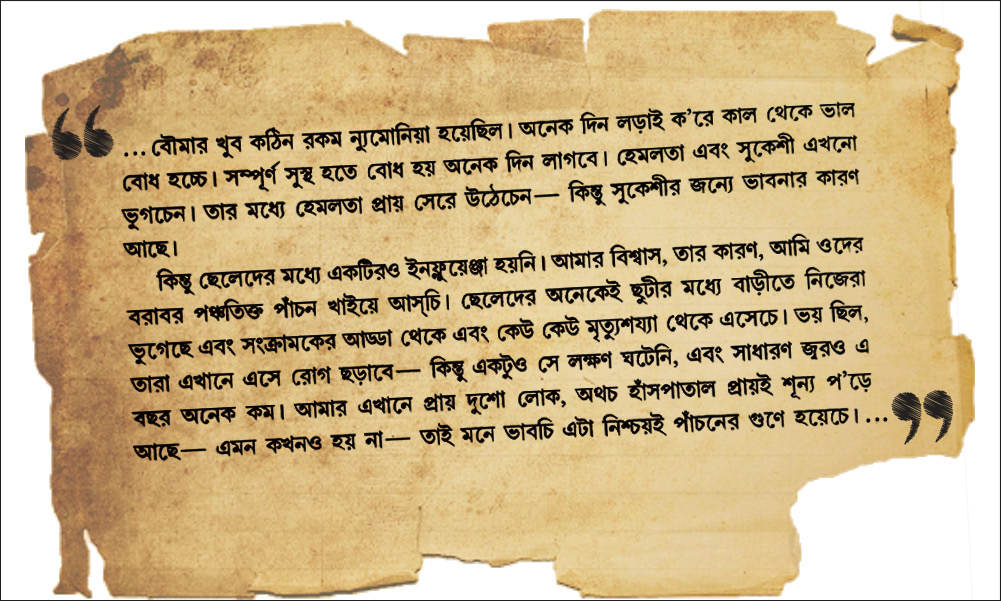 “ ...বৌমার খুব কঠিন রকম ন্যুমোনিয়া হয়েছিল। অনেক দিন লড়াই ক’রে কাল থেকে ভাল
বোধ হচ্চে। সম্পূর্ণ সুস্থ হতে বোধ হয় অনেক দিন লাগবে। হেমলতা এবং সুকেশী এখনো
ভুগচেন। তার মধ্যে হেমলতা প্রায় সেরে উঠেচেন— কিন্তু সুকেশীর জন্যে ভাবনার কারণ
আছে।
কিন্তু ছেলেদের মধ্যে একটিরও ইনফ্লুয়েঞ্জা হয়নি। আমার বিশ্বাস, তার কারণ, আমি ওদের
বরাবর পঞ্চতিক্ত পাঁচন খাইয়ে আস্‌চি। ছেলেদের অনেকেই ছুটীর মধ্যে বাড়ীতে নিজেরা
ভুগেছে এবং সংক্রামকের আড্ডা থেকে এবং কেউ কেউ মৃত্যুশয্যা থেকে এসেচে। ভয় ছিল,
তারা এখানে এসে রোগ ছড়াবে— কিন্তু একটুও সে লক্ষণ ঘটেনি, এবং সাধারণ জ্বরও এ
বছর অনেক কম। আমার এখানে প্রায় দুশো লোক, অথচ হাঁসপাতাল প্রায়ই শূন্য প’ড়ে
আছে— এমন কখনও হয় না— তাই মনে ভাবচি এটা নিশ্চয়ই পাঁচনের গুণে হয়েচে।... ”